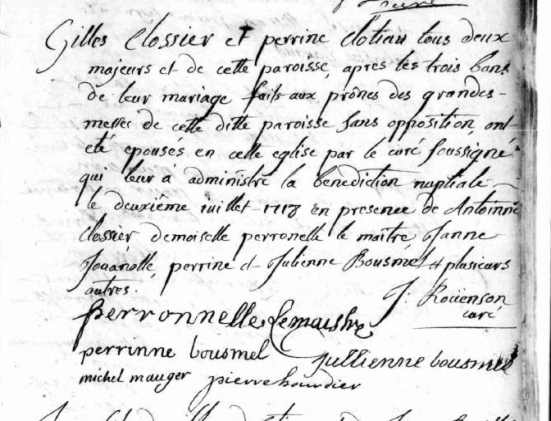 Gilles Clossier et perrine clotiau tous deux
majeurs et de cette paroisse, apres les trois bans
de leur mariage faits aux prônes des grandes-
messes de cette ditte paroisse sans opposition, ont
eté epousés en cette eglise par le curé soussigné
qui leur a administré la benediction nuptiale
le deuxiéme iuillet 1713 en presence de Antoinne
clossier demoiselle perronelle le maître, Janne
Jouanolle, perrine et Julienne Bousmel et plusieurs
autres.
J. Roüenson
curé
perronnelle Lemaistre
perrinne bousmel
jullienne bousmel
michel mauger pierre hourdier